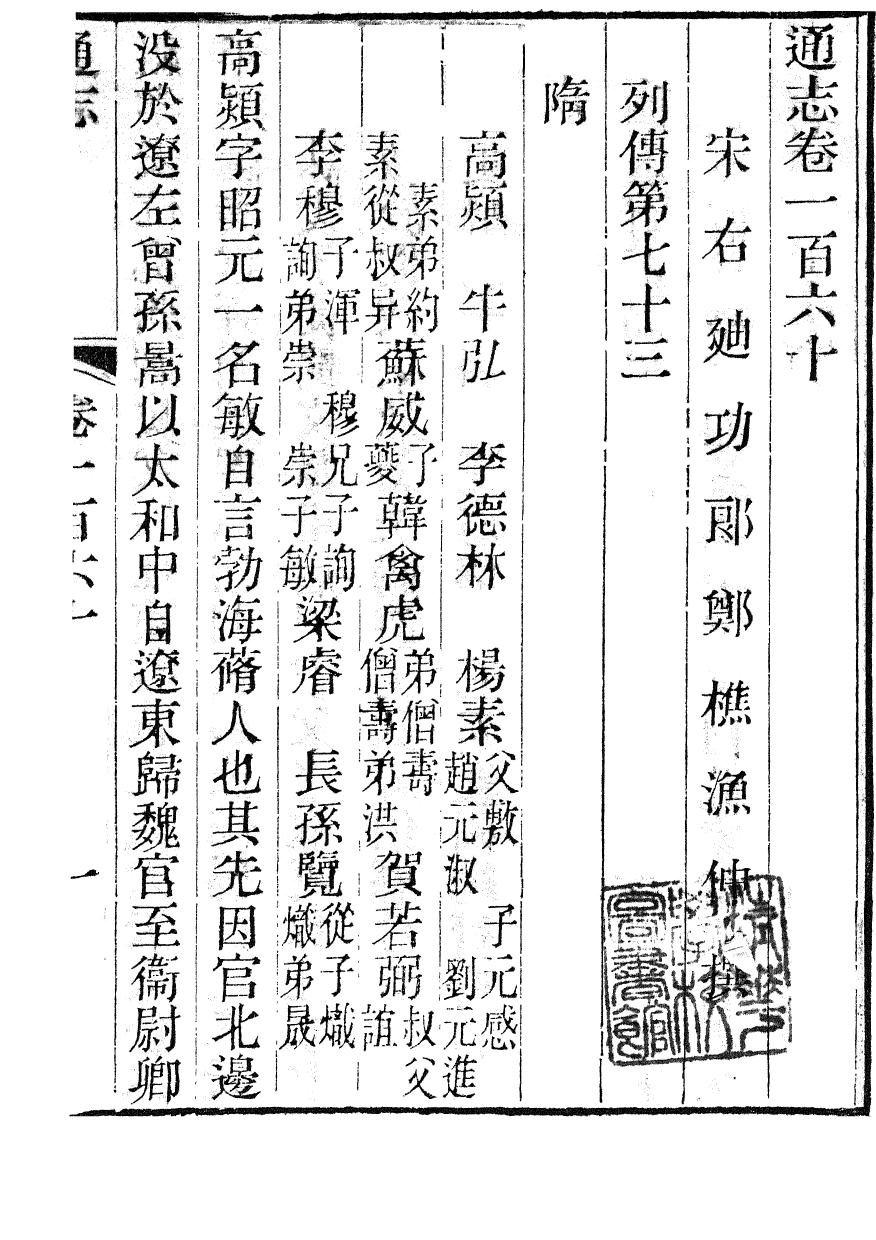 通志卷一百六十
宋右廸功郎鄭樵漁仲撰
列傳第七十三
隋
高熲 牛弘 李德林 楊素 父敷 子元感 趙元淑 劉元進
素弟約 素從叔异 蘇威 子夔 韓禽虎 弟僧壽 僧壽弟洪 賀若弼 叔父誼
李穆 子渾 穆兄子詢 詢弟崇 崇子敏 梁睿 長孫覽 從子熾 熾弟晟
高熲字昭元一名敏自言勃海蓨人也其先因官北邊
没於遼左曾孫暠以太和中自遼東歸魏官至衞尉卿
通志 卷一百六十 一